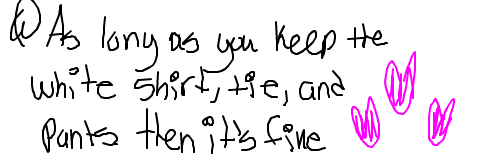 As long as you keep the
white shirt, tie, and
pants then it's fine